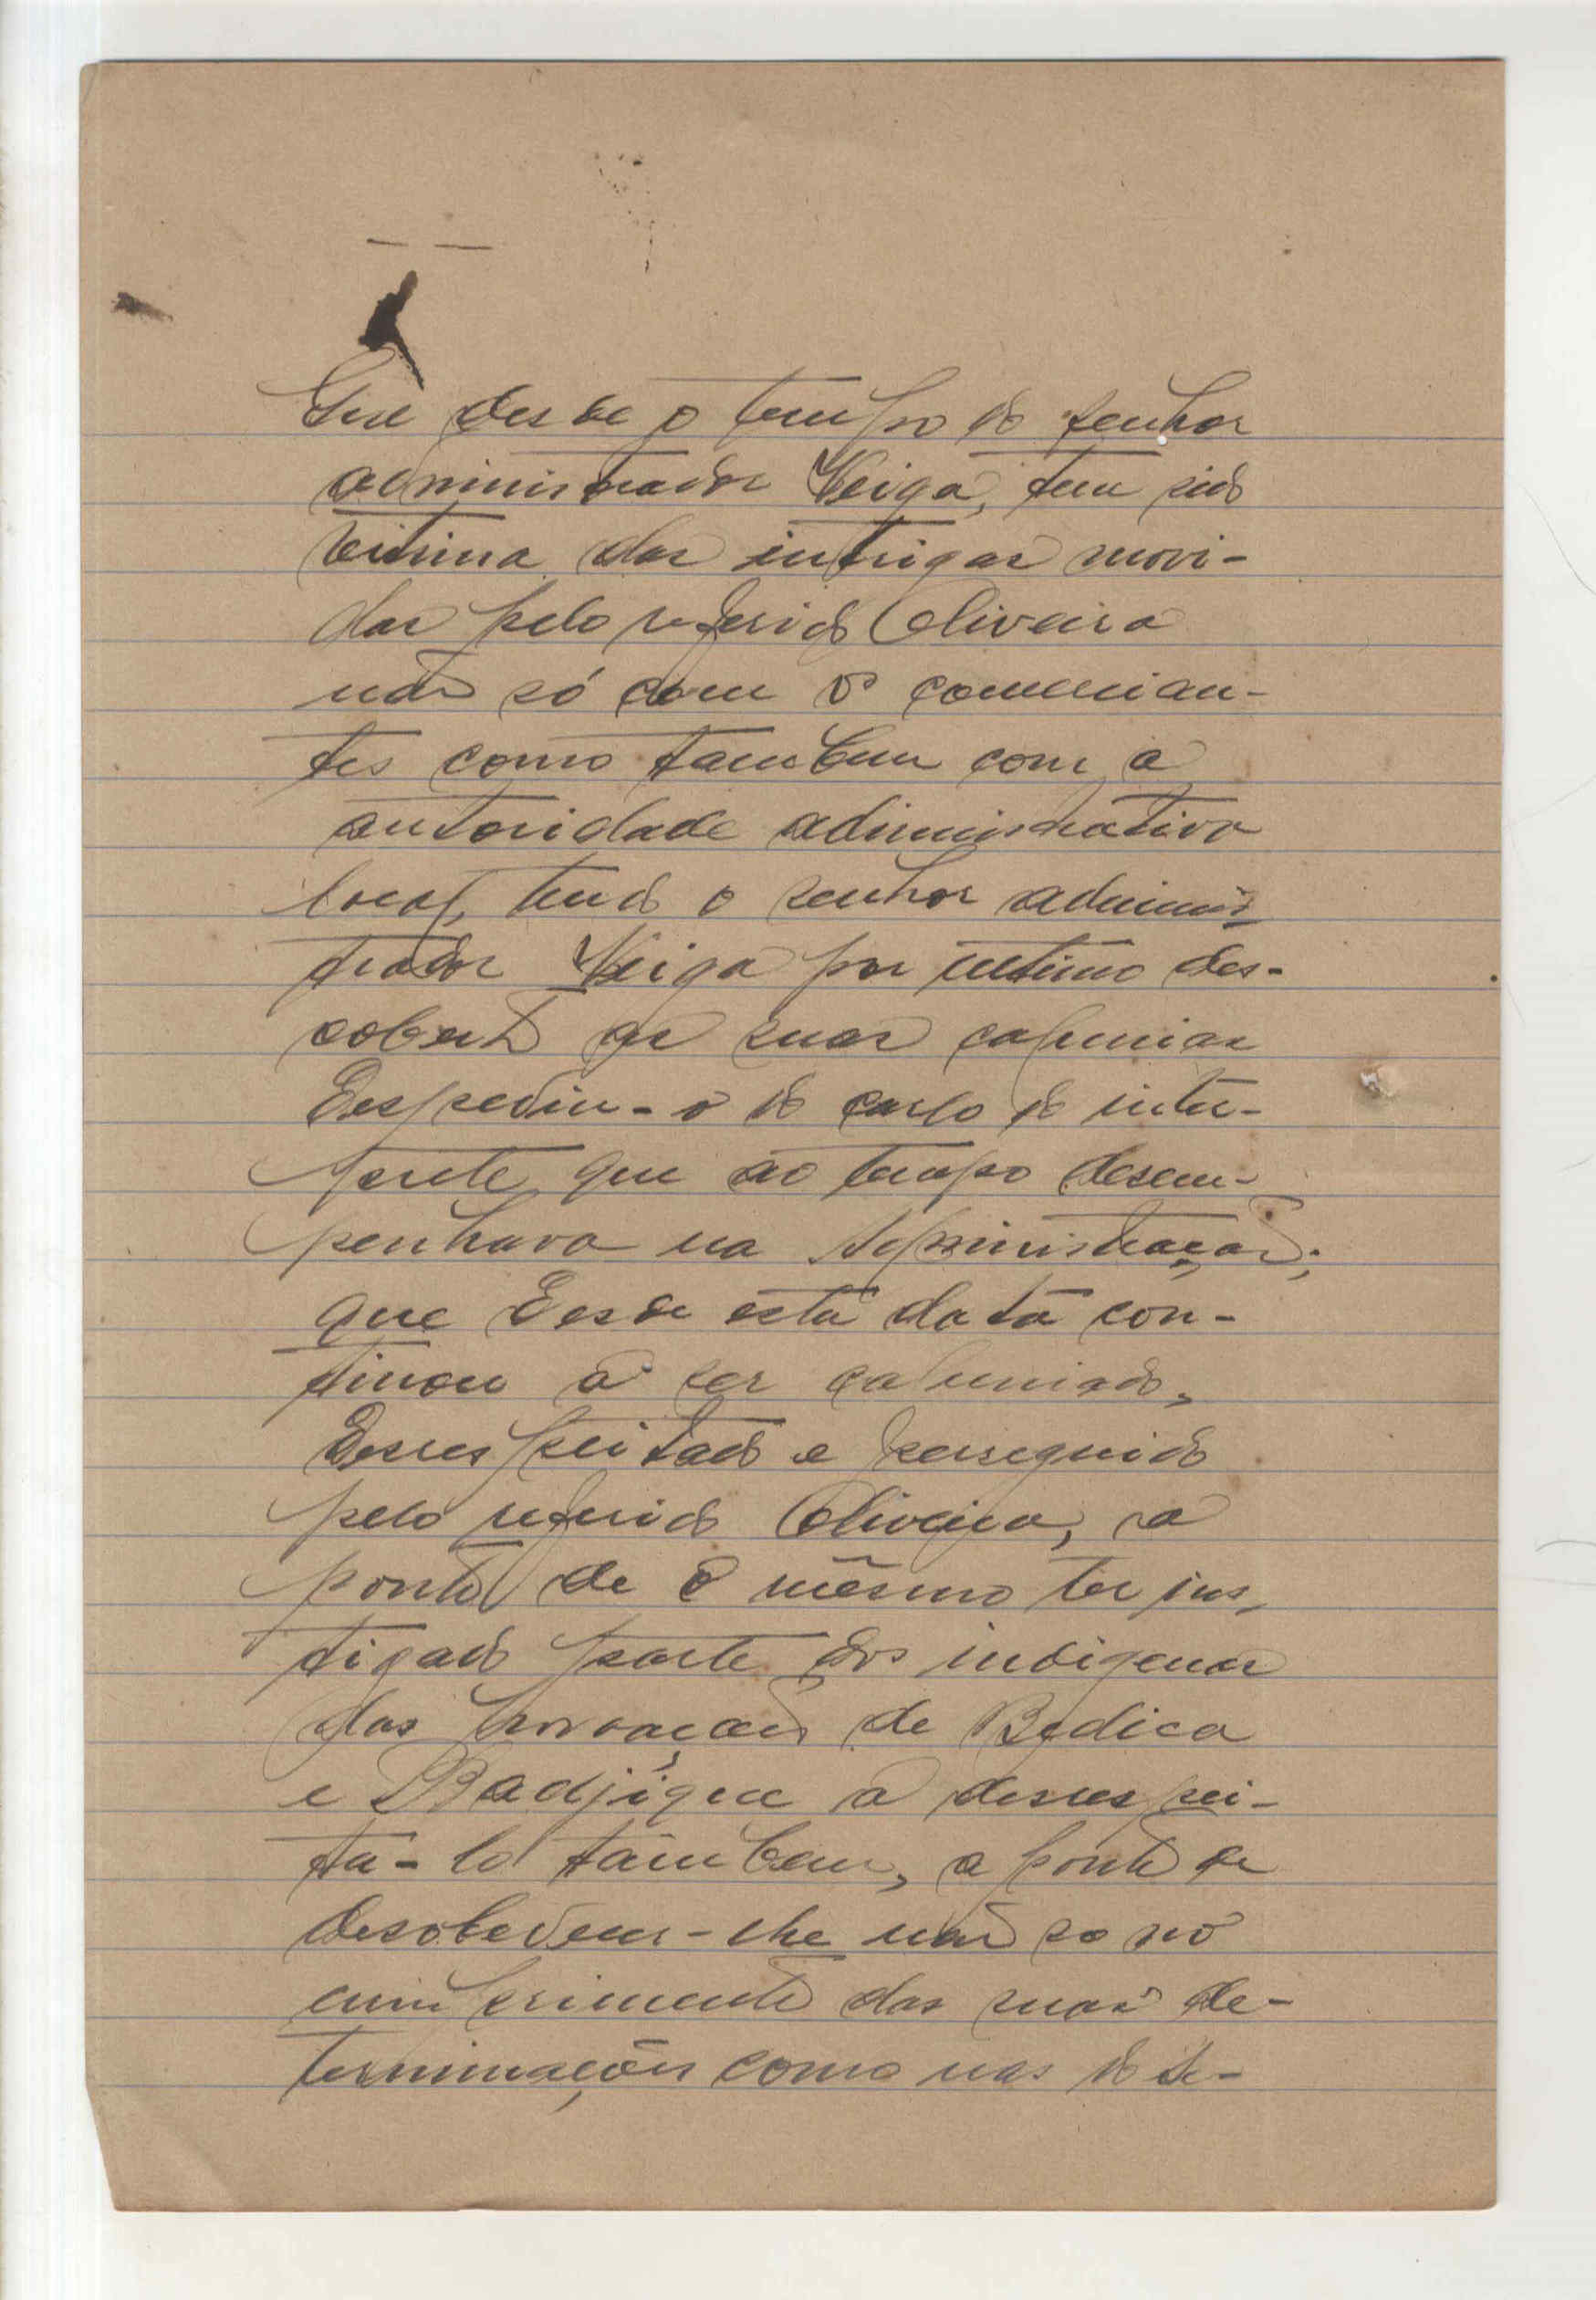 Que desde o tempo do senhor
administrador Veiga, tem sido
vitima das intrigas movi-
das pelo referido Oliveira
não só com os comercian-
tes como tambem com a
autoridade administrativa
local, tendo o senhor adminis-
trador Veiga por ultimo des-
coberto as suas calunias
Despediu-o do cargo de inter-
prete que ao tempo desem-
penhava na Administração;
que desde esta data con-
tinou a ser caluniado,
desrespeitado e perseguido
pelo referido Oliveira, a
ponto de o mêsmo ter ins-
tigado parte dos indigenas
das povoações de Bedica
e Badjique a desrespei-
ta-lo tâmbem, a ponto de
desobedecer-lhe não so no
cumprimento das suas de-
terminações como nas do Se-